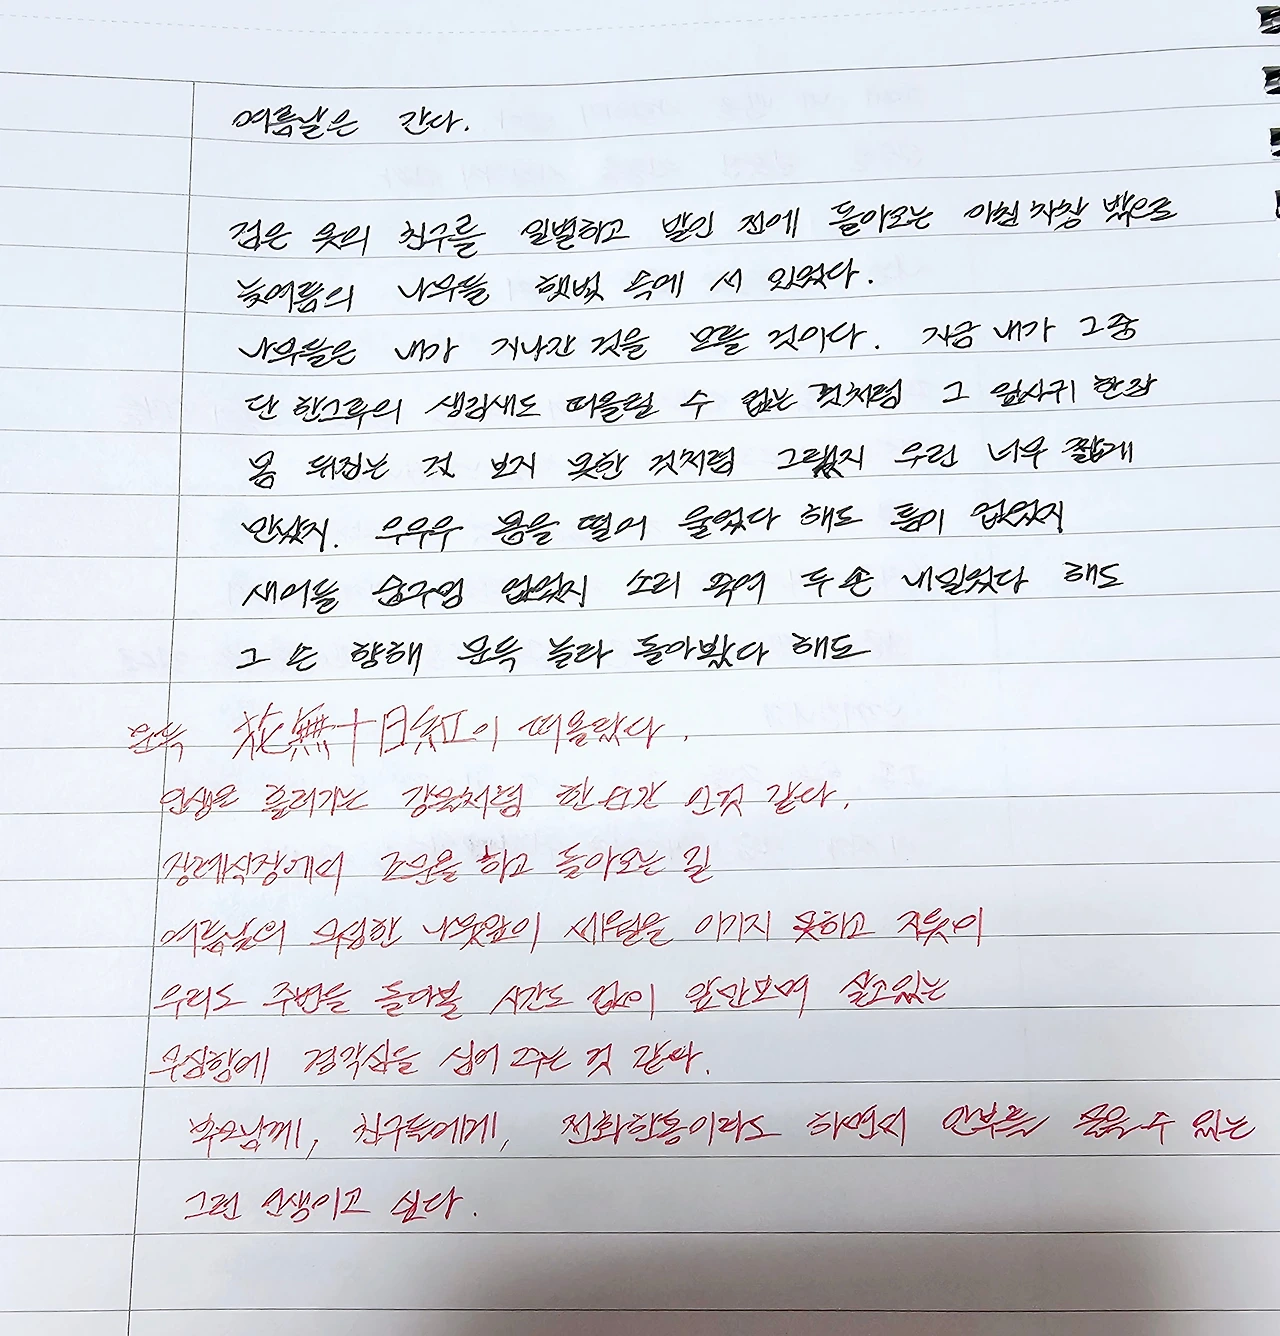 여름날은 간다.
검은 옷의 친구를 일별하고 발인 전에 돌아오는 아침 차창 밖으로
늦여름의 나무들 햇빛 속에 서 있었다.
나무들은 내가 지나간 것을 모를 것이다. 지금 내가 그중
단 한그루의 생김새도 떠올릴 수 없는 것처럼 그 잎사귀 한장
몸 뒤집는 것 보지 못한 것처럼 그랬지 우린 너무 짧게
만났지. 우우우 몸을 떨어 울었다 해도 틈이 없었지
새어들 숨구멍 없었지 소리 죽여 두 손 내밀었다 해도
그 손 향해 문득 놀라 돌아봤다 해도
문득 花無十日紅이 떠올랐다.
인생은 흘러가는 강물처럼 한 순간 인것 같다.
장례식장에서 조문을 하고 돌아오는 길
여름날의 무성한 나뭇잎이 세월을 이기지 못하고 지듯이
우리도 주변을 돌아볼 시간도 없이 앞만보며 살고있는
무심함에 경각심을 심어 주는 것 같다.
부모님께, 친구들에게, 전화한통이라도 하면서 안부를 물을 수 있는
그런 인생이고 싶다.